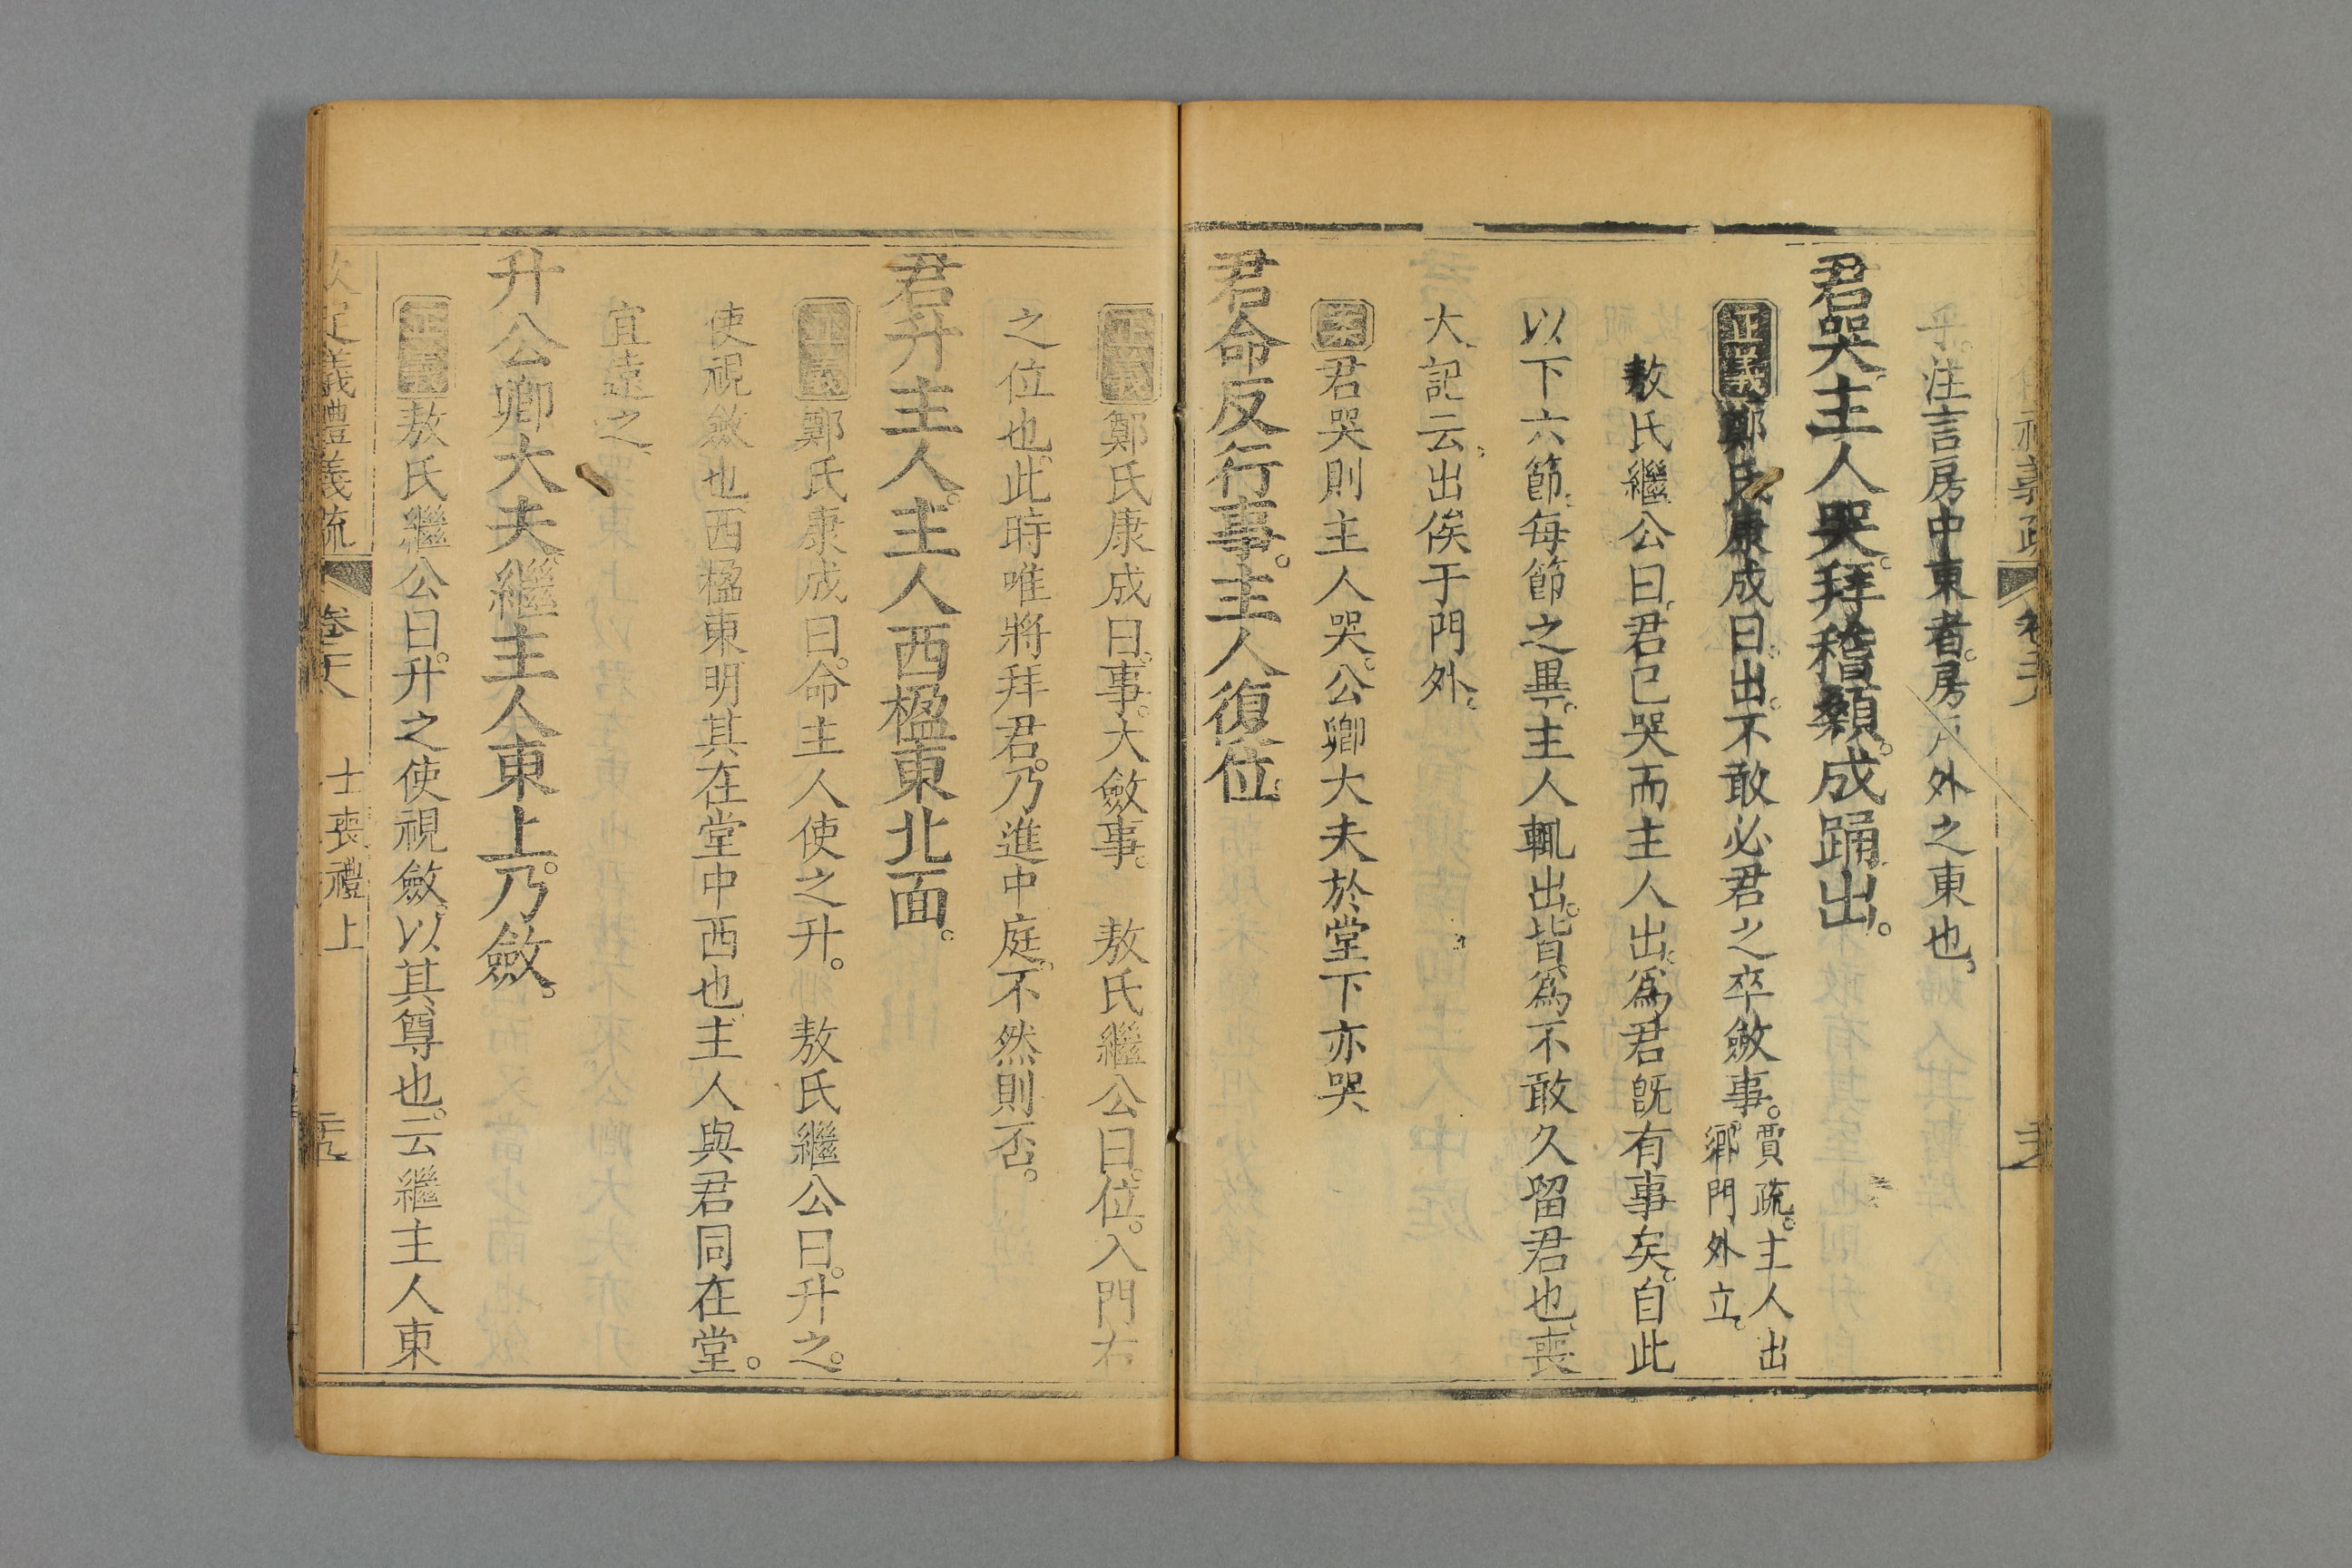 乎。注言房中東者。房戶外之東也。
君哭。主人哭。拜稽顙。成踊。出。
正義鄭氏康成曰。出。不敢必君之卒斂事。賈疏。主人出
鄉門外立。
敖氏繼公曰。君已哭而主人出。爲君旣有事矣。自此
以下六節。每節之畢。主人輒出。皆爲不敢久留君也。喪
大記云。出俟于門外。
君哭則主人哭。公卿大夫於堂下亦哭
君命反行事。主人復位。
正義鄭氏康成曰。事。大斂事。　敖氏繼公曰。位。入門右
之位也。此時唯將拜君。乃進中庭。不然則否。
君升主人。主人西楹東北面。
正義鄭氏康成曰。命主人使之升。　敖氏繼公曰。升之。
使視斂也。西楹東。明其在堂中西也。主人與君同在堂。
宜遠之。
升公卿大夫。繼主人東上。乃斂。
正義敖氏繼公曰。升之使視斂。以其尊也。云繼主人東
欽定儀禮義疏　卷二十八　士喪禮上